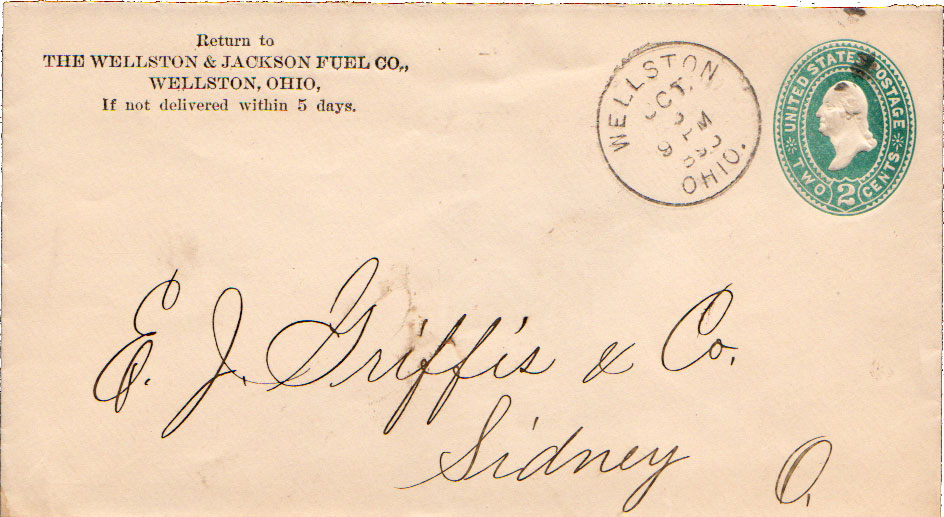 Return to
THE WELLSTON & JACKSON FUEL CO.,
WELLSTON, OHIO,
If not delivered within 5 days.
WELLSTON
OCT.
OHIO.
UNITED STATES POSTAGE
TWO 2 CENTS
E. J. Griffis & Co.
Sidney O.